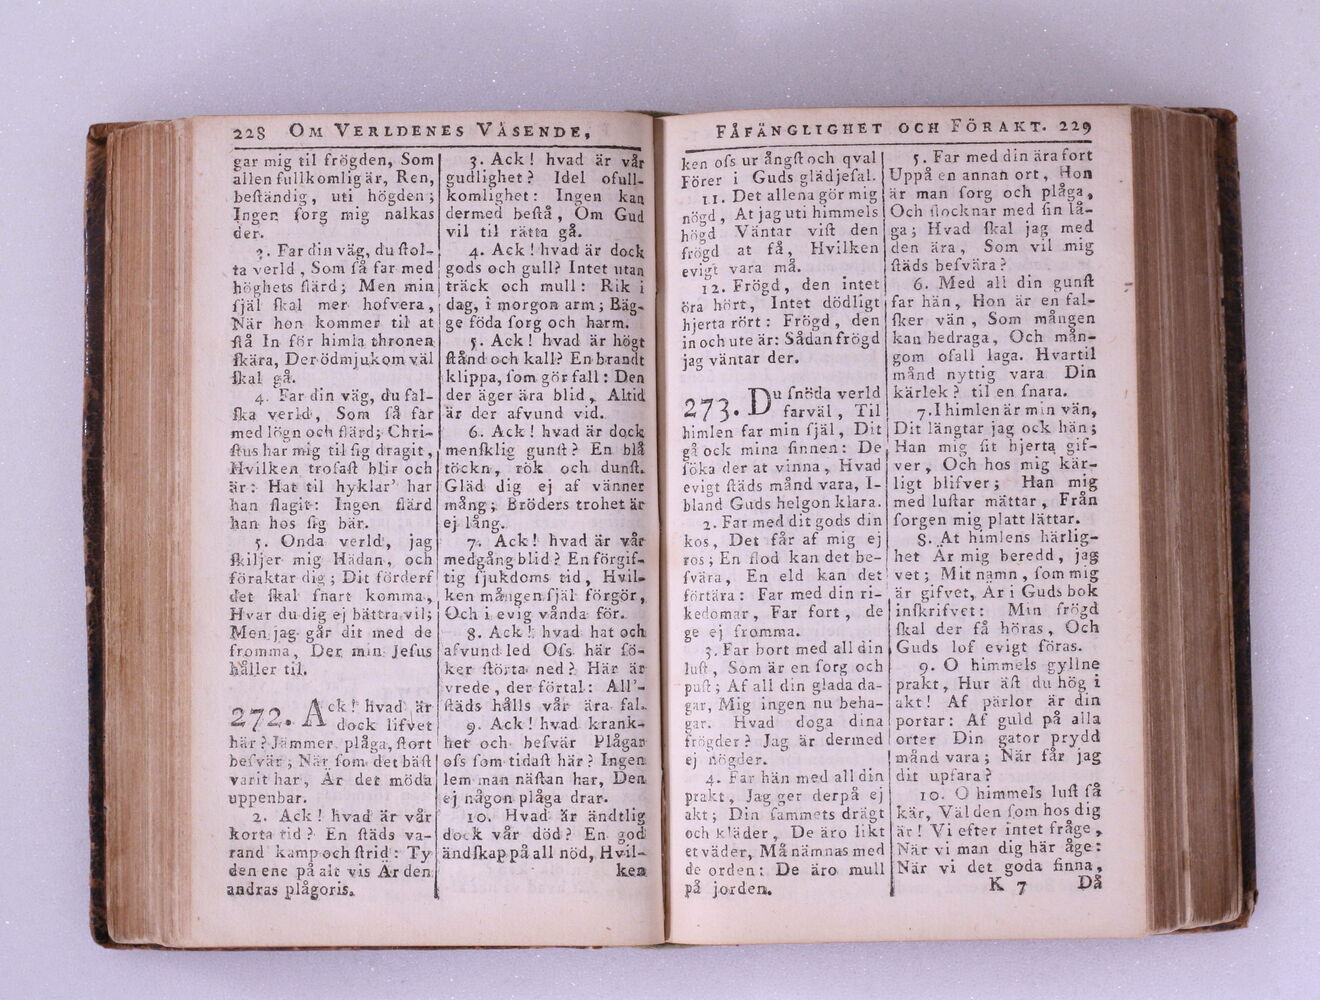 228 OM VERLDENES VÄSENDE,
gar mig til frögden, Som
allen fullkomlig är, Ren,
beſtändig, uti högden;
Ingen ſorg mig nalkas
der.
3. Far din väg, du ſtol-
ta verld, Som ſå far med
höghets flärd; Men min
ſjäl ſkal mer hofvera,
När hon kommer til at
ſtå In för himla thronen
ſkära, Der ödmjukom väl
ſkal gå.
4. Far din väg, du fal-
ſka verld, Som ſå far
med lögn och flärd; Chri-
ſtus har mig til ſig dragit,
Hvilken trofaſt blir och
är: Hat til hyklar' har
han ſlagit: Ingen flärd
han hos ſig bär.
5. Onda verld, jag
ſkiljer mig Hädan, och
föraktar dig; Dit förderf
det ſkal ſnart komma,
Hvar du dig ej bättra vil;
Men jag går dit med de
fromma, Der min Jeſus
håller til.
272. Ack! hvad är
dock lifvet
här? Jämmer, plåga, ſtort
beſvär; När ſom det bäſt
varit har, Är det möda
uppenbar.
2. Ack! hvad är vår
korta tid? En ſtäds va-
rand kamp och ſtrid: Ty
den ene på alt vis Är den
andras plågoris.
3. Ack! hvad är vår
gudlighet? Idel ofull-
komlighet: Ingen kan
dermed beſtå, Om Gud
vil til rätta gå.
4. Ack! hvad är dock
gods och gull? Intet utan
träck och mull: Rik i
dag, i morgon arm; Bäg-
ge föda ſorg och harm.
5. Ack! hvad är högt
ſtånd och kall? En brandt
klippa, ſom gör fall: Den
der äger ära blid, Altid
är der afvund vid.
6. Ack! hvad är dock
menſklig gunſt? En blå
töckn, rök och dunſt.
Gläd dig ej af vänner
mång; Bröders trohet är
ej lång.
7. Ack! hvad är vår
medgång blid? En förgif-
tig ſjukdoms tid, Hvil-
ken mången ſjäl förgör,
Och i evig vånda för.
8. Ack! hvad hat och
afvund led Oſs här ſö-
ker ſtörta ned? Här är
vrede, der förtal: All'-
ſtäds hålls vår ära fal.
9. Ack! hvad krank-
het och beſvär Plågar
oſs ſom tidaſt här? Ingen
lem man näſtan har, Den
ej någon plåga drar.
10. Hvad är ändtlig
dock vår död? En god
ändſkap på all nöd, Hvil-
ken
FÅFÄNGLIGHET OCH FÖRAKT. 229
ken oſs ur ångſt och qval
Förer i Guds glädjeſal.
11. Det allena gör mig
nögd, At jag uti himmels
högd Väntar viſt den
frögd at få, Hvilken
evigt vara må.
12. Frögd, den intet
öra hört, Intet dödligt
hjerta rört: Frögd, den
in och ute är: Sådan frögd
jag väntar der.
273. Du ſnöda verld
farväl, Til
himlen far min ſjäl, Dit
gå ock mina ſinnen: De
ſöka der at vinna, Hvad
evigt ſtäds månd vara, I-
bland Guds helgon klara.
2. Far med dit gods din
kos, Det får af mig ej
ros; En flod kan det be-
ſvära, En eld kan det
förtära: Far med din ri-
kedomar, Far fort, de
ge ej fromma.
3. Far bort med all din
luſt, Som är en ſorg och
puſt; Af all din glada da-
gar, Mig ingen nu beha-
gar. Hvad doga dina
frögder? Jag är dermed
ej nögder.
4. Far hän med all din
prakt, Jag ger derpå ej
akt; Din ſammets drägt
och kläder, De äro likt
et väder, Må nämnas med
de orden: De äro mull
på jorden.
5. Far med din ära fort
Uppå en annan ort, Hon
är man ſorg och plåga,
Och ſlocknar med ſin lå-
ga; Hvad ſkal jag med
den ära, Som vil mig
ſtäds beſvära?
6. Med all din gunſt
far hän, Hon är en fal-
ſker vän, Som mången
kan bedraga, Och mån-
gom ofall laga. Hvartil
månd nyttig vara Din
kärlek? til en ſnara.
7. I himlen är min vän,
Dit längtar jag ock hän;
Han mig ſit hjerta gif-
ver, Och hos mig kär-
ligt blifver; Han mig
med luſtar mättar, Från
ſorgen mig platt lättar.
8. At himlens härlig-
het Är mig beredd, jag
vet; Mit namn, ſom mig
är gifvet, Är i Guds bok
inſkrifvet: Min frögd
ſkal der få höras, Och
Guds lof evigt föras.
9. O himmels gyllne
prakt, Hur äſt du hög i
akt! Af pärlor är din
portar: Af guld på alla
orter Din gator prydd
månd vara; När får jag
dit upfara?
10. O himmels luſt få
kär, Väl den ſom hos dig
är! Vi efter intet fråge,
När vi man dig här äge:
När vi det goda finna,
K 7 Då